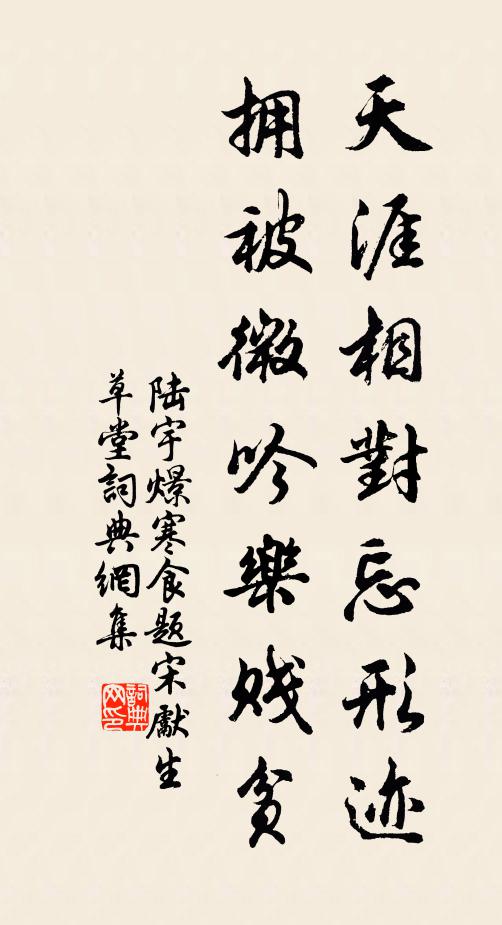 天涯相對忘形迹
拥被微吟樂贱貧
陆宇燝寒食题宋獻生
草堂詞典網集
詞典网印